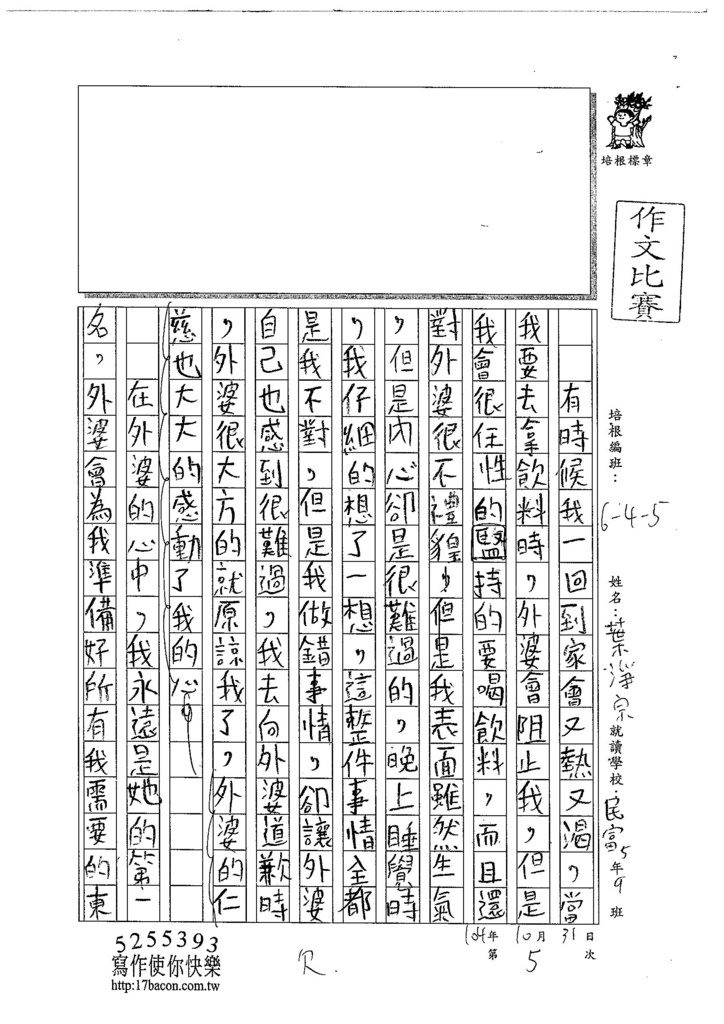 培根標章
作文比賽
培根編班：6-4-5
姓名：葉濢宗 就讀學校：民富 5年9班
104年10月31日
第5次
有時候我一回到家會又熱又渴，當
我要去拿飲料時，外婆會阻止我，但是
我會很任性的堅持的要喝飲料，而且還
對外婆很不禮貌，但是我表面雖然生氣
，但是內心卻是很難過的，晚上睡覺時
，我仔細的想了一想，這整件事情全都
是我不對，但是我做錯事情，卻讓外婆
自己也感到很難過，我去向外婆道歉時
，外婆很大方的就原諒我了，外婆的仁
慈也大大的感動了我的心。
在外婆的心中，我永遠是她的第一
名，外婆會為我準備好所有我需要的東
5255393
寫作使你快樂
http:17bacon.com.tw